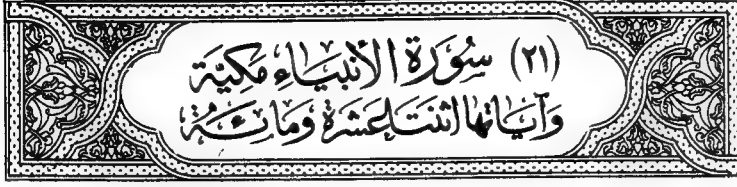 (٢١) سُورَة الأنبيَاءِ مَكيَّة
وَآيَاتهَا اثنتَا عَشرَة وَمَائَة